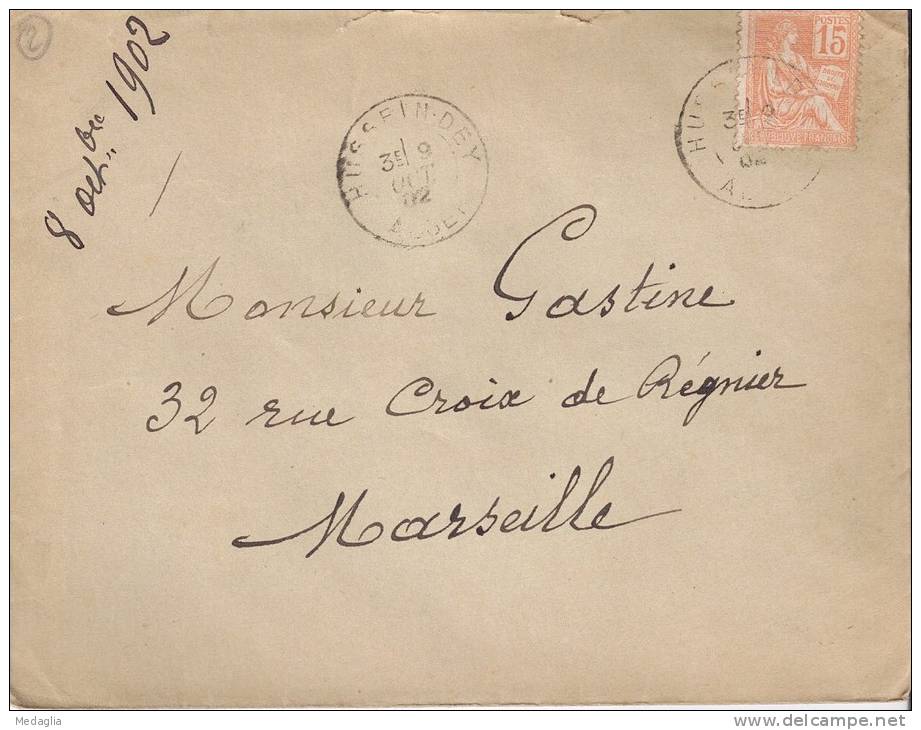 2
8 octbre 1902
HUSSEIN-DEY
3E 9
OCT
02
ALGER
POSTES
15
HUS
3E 9
02
AL
REPUBLIQUE FRANÇAISE
Monsieur Gastine
32 rue Croix de Régnier
Marseille
Medaglia
http://www.delcampe.net